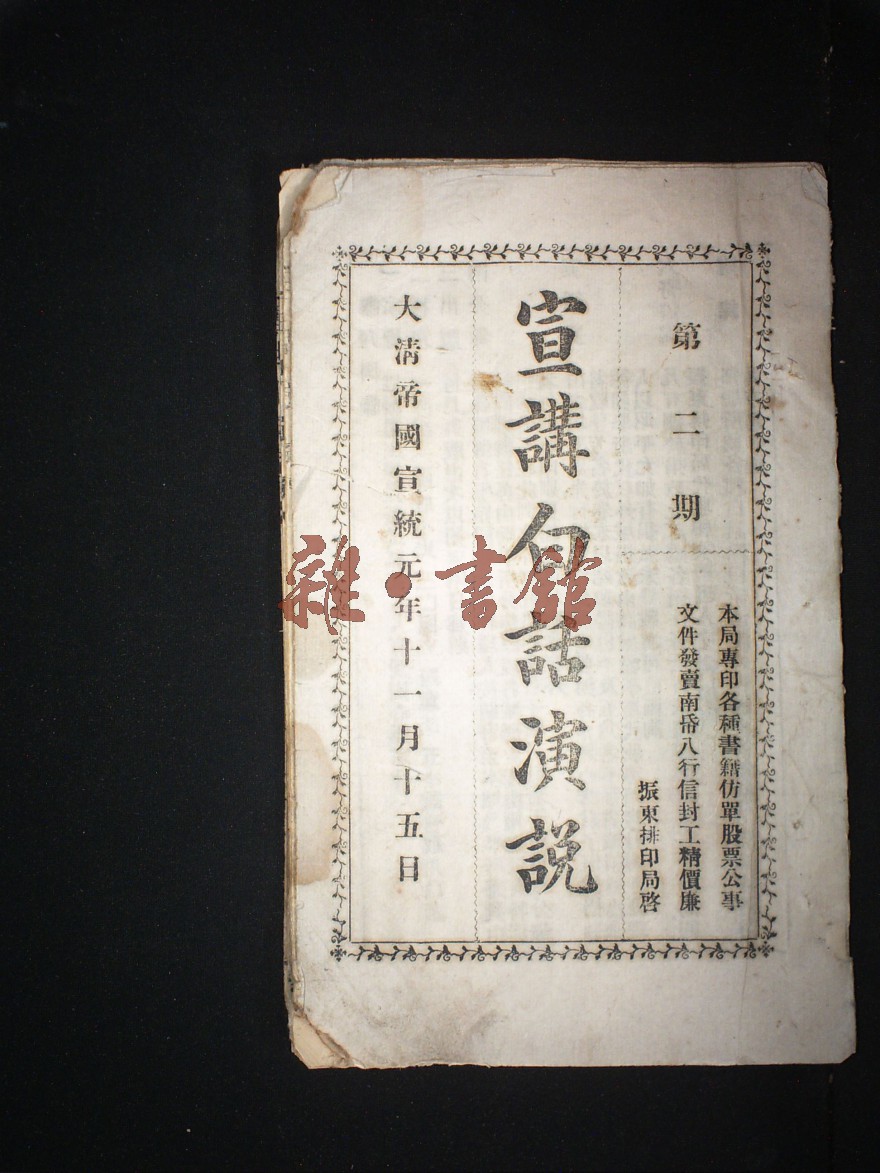 第二期
本局專印各種書籍仿單股票公事
文件發賣南帋八行信封工精價廉
振東排印局啓
宣講白話演説
大清帝國宣統元年十一月十五日
雜·書館